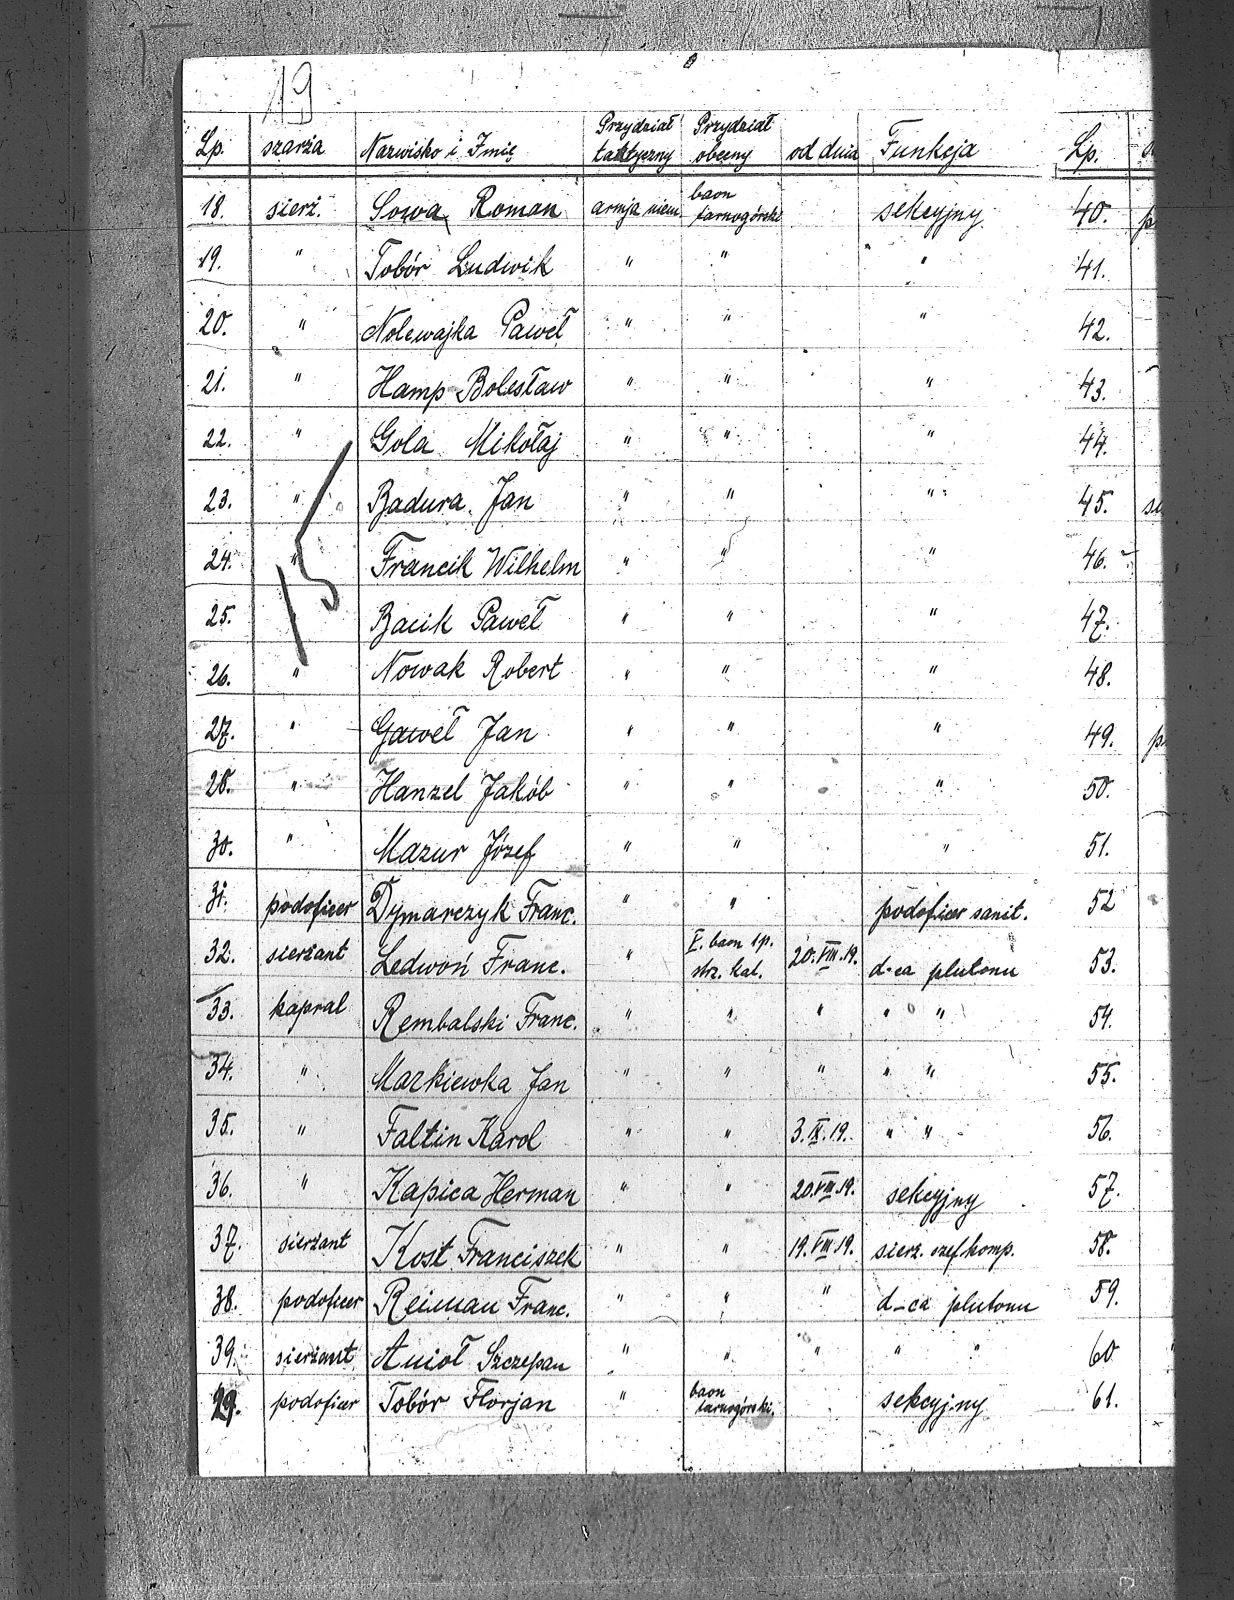 19
Lp. szarża Nazwisko i Imię Przydział taktyczny Przydział obecny od dnia Funkcja Lp.
18. sierż. Sowa Roman armja niem. baon tarnogórski sekcyjny 40.
19. " Tobór Ludwik " " " 41.
20. " Nolewajka Paweł " " " 42.
21. " Hamp Bolesław " " " 43.
22. " Gola Mikołaj " " " 44.
23. " Badura Jan " " " 45.
24. " Francik Wilhelm " " " 46.
25. Bacik Paweł " " " 47.
26. " Nowak Robert " " " 48.
27. " Gaweł Jan " " " 49.
28. " Hanzel Jakób " " " 50.
30. " Mazur Józef " " " 51.
31. podoficer Dymarczyk Franc. " " podoficer sanit. 52
32. sierżant Ledwoń Franc. " V. baon 1 p. strz. kat. 20.VIII.19. d-ca plutonu 53.
33. kapral Rembalski Franc. " " " " " 54.
34. " Markiewka Jan " " " " " 55.
35. " Faltin Karol " " 3.IX.19. " " 56.
36. " Kapica Herman " " 20.VIII.19. sekcyjny 57.
37. sierżant Kost Franciszek " " 19.VIII.19. sierż. szef komp. 58.
38. podoficer Reiman Franc. " " " d-ca plutonu 59.
39. sierżant Anioł Szczepan " " " " " 60
29. podoficer Tobór Florjan " baon tarnogórski. sekcyjny 61.
15